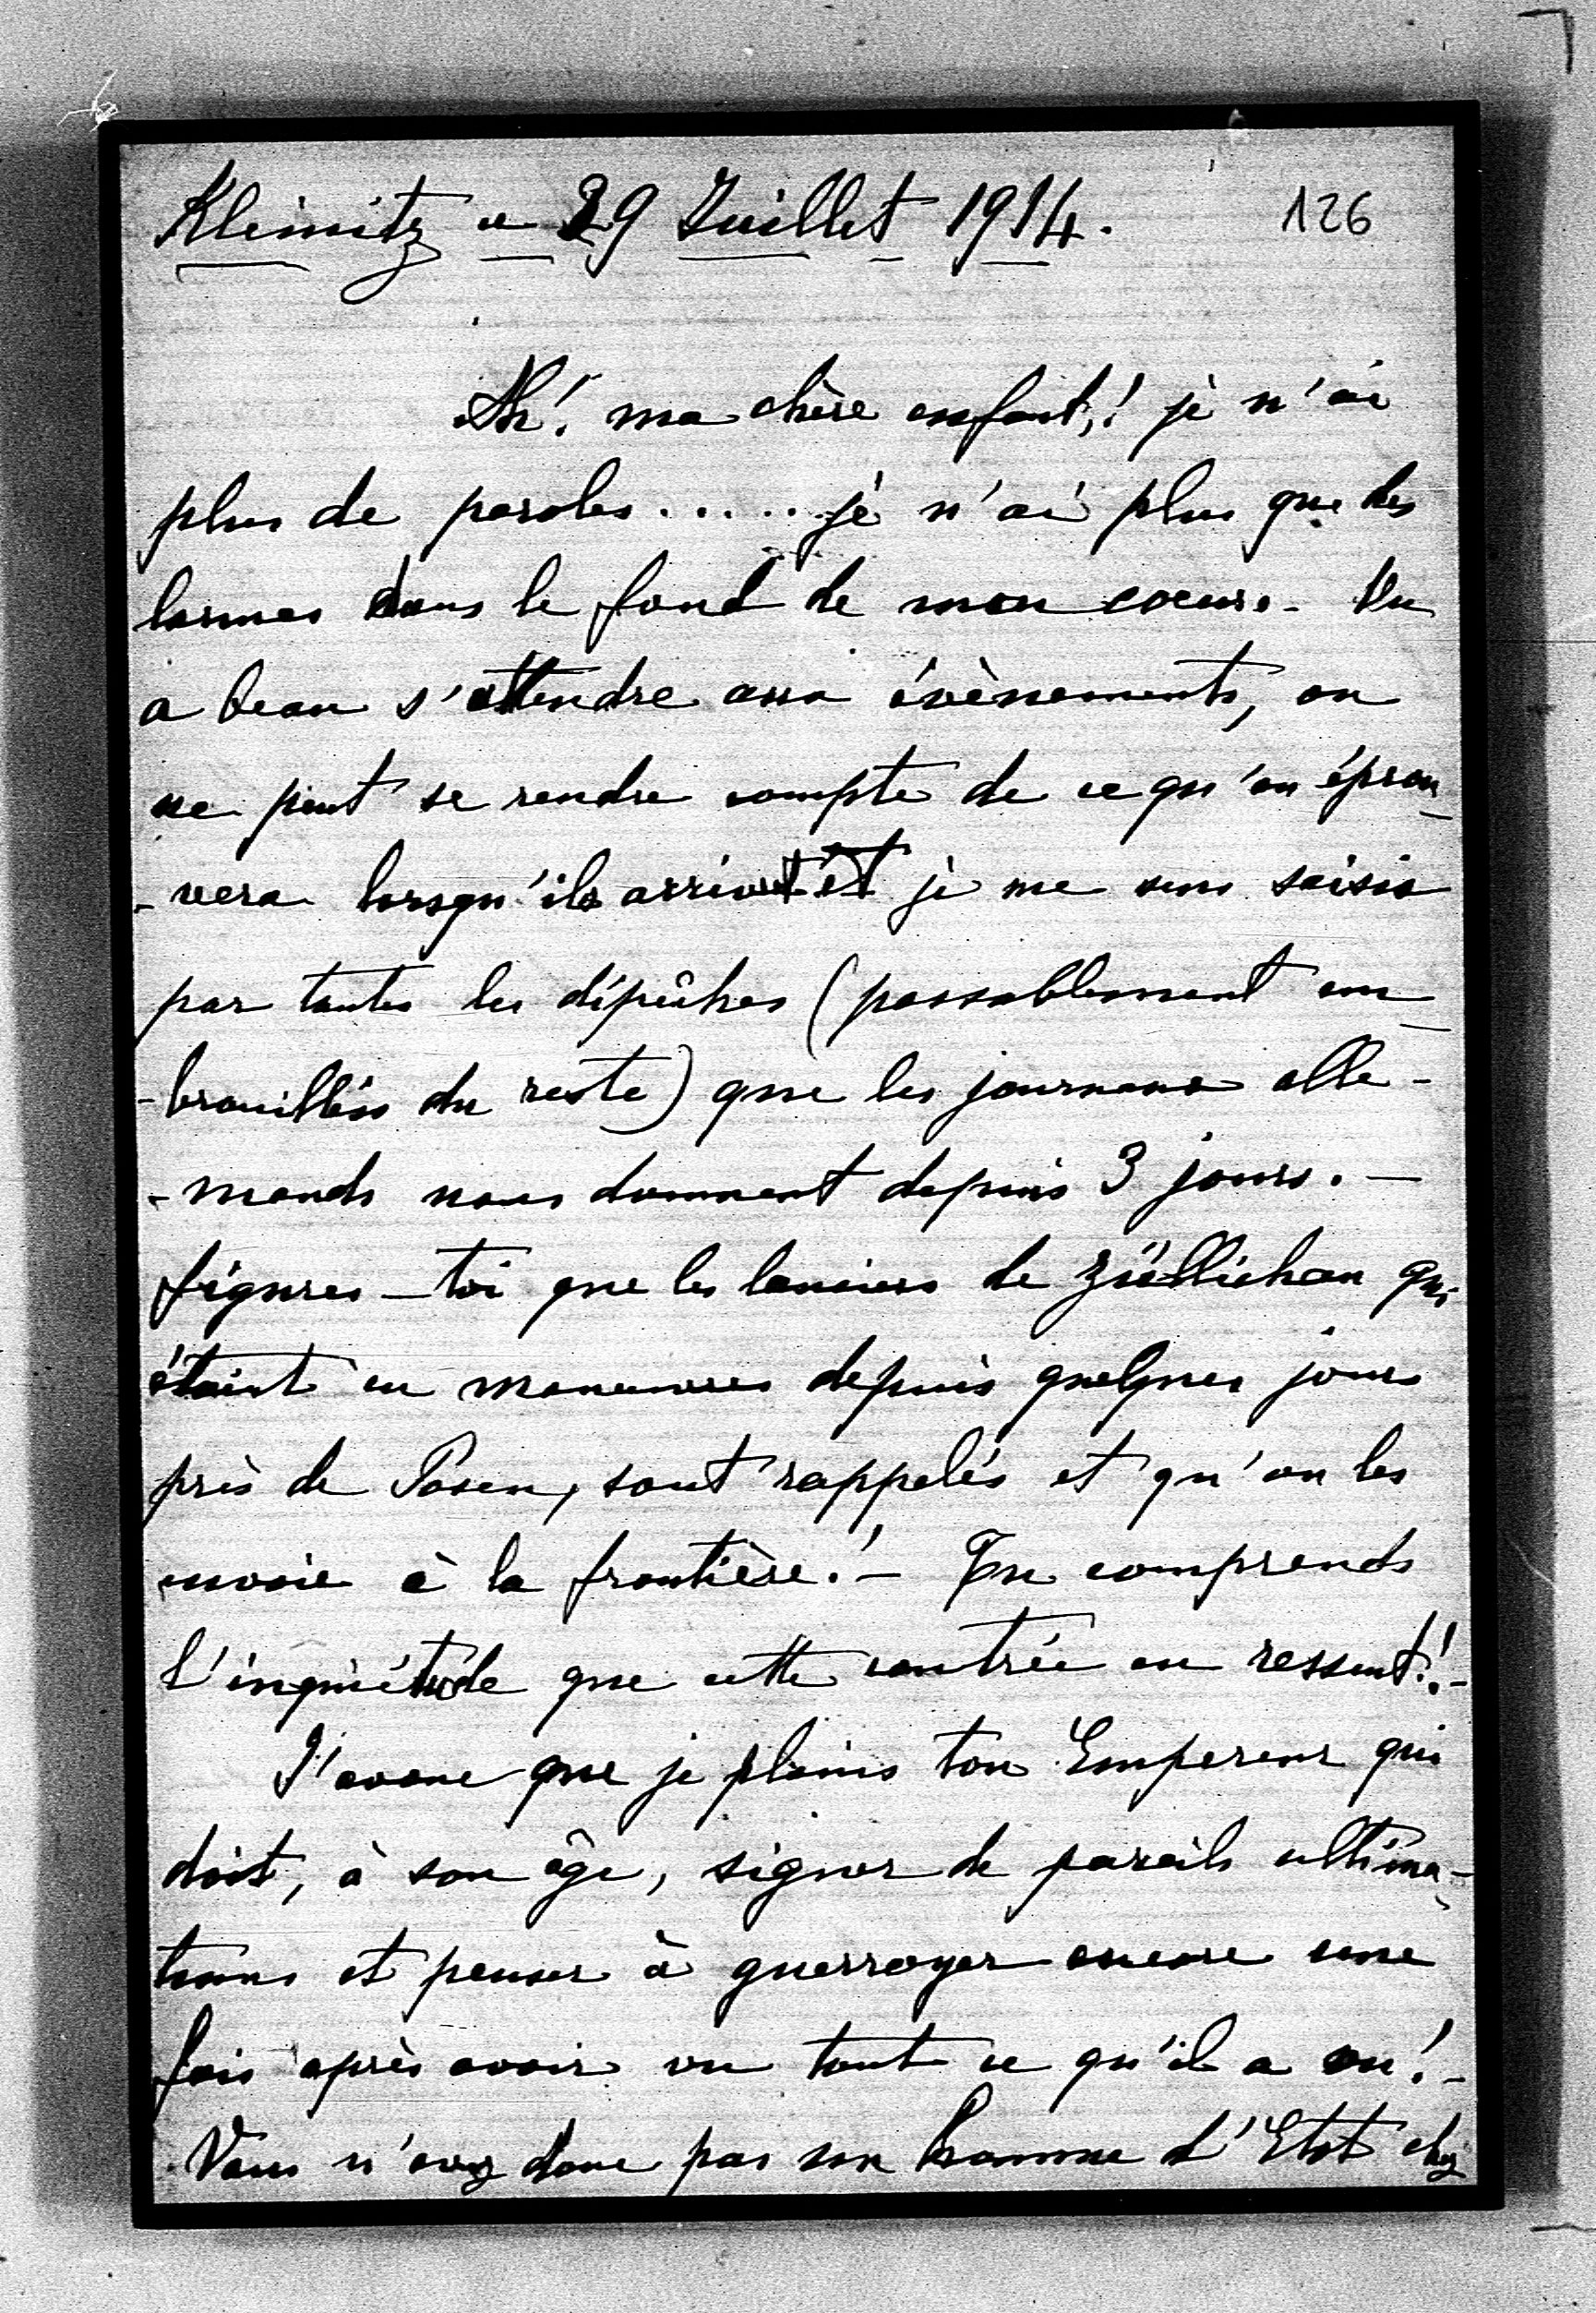 Kleinitz ce 29 Juillet 1914. 126
Ah! ma chère enfant,! je n'ai
plus de paroles..... je n'ai plus que des
larmes dans le fond de mon coeur. - On
a beau s'attendre aux évènements, on
ne peut se rendre compte de ce qu'on éprou-
-vera lorsqu'ils arrivent et je me sens saisie
par toutes les dépêches (passablement em-
-brouillées du reste) que les journaux alle-
-mands nous donnent depuis 3 jours. -
figures-toi que les lanciers de Züllichau qui
étaient en manœuvres depuis quelques jours
près de Posen, sont rappelés et qu'on les
envoie à la frontière! - Tu comprends
l'inquiétude que cette contrée en ressent!! -
J'avoue que je plains ton Empereur qui
doit, à son âge, signer de pareils ultima-
tums et penser à guerroyer encore une
fois après avoir vu tout ce qu'il a vu! -
Vous n'avez donc pas un homme d'Etat chez